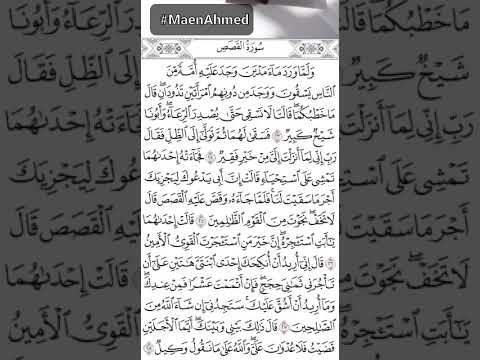 #MaenAhmed
سُورَةُ القَصَصِ
وَلَمَّا وَرَدَ مَآءَ مَدْيَنَ وَجَدَ عَلَيْهِ أُمَّةً مِّنَ
ٱلنَّاسِ يَسْقُونَ وَوَجَدَ مِن دُونِهِمُ ٱمْرَأَتَيْنِ تَذُودَانِۖ قَالَ
مَا خَطْبُكُمَاۖ قَالَتَا لَا نَسْقِي حَتَّىٰ يُصْدِرَ ٱلرِّعَآءُۖ وَأَبُونَا
شَيْخٌ كَبِيرٌ فَسَقَىٰ لَهُمَا ثُمَّ تَوَلَّىٰٓ إِلَى ٱلظِّلِّ فَقَالَ
رَبِّ إِنِّي لِمَآ أَنزَلْتَ إِلَيَّ مِنْ خَيْرٍ فَقِيرٌ فَجَآءَتْهُ إِحْدَىٰهُمَا
تَمْشِي عَلَى ٱسْتِحْيَآءٍ قَالَتْ إِنَّ أَبِي يَدْعُوكَ لِيَجْزِيَكَ
أَجْرَ مَا سَقَيْتَ لَنَاۚ فَلَمَّا جَآءَهُۥ وَقَصَّ عَلَيْهِ ٱلْقَصَصَ قَالَ
لَا تَخَفْۖ نَجَوْتَ مِنَ ٱلْقَوْمِ ٱلظَّٰلِمِينَ قَالَتْ إِحْدَىٰهُمَا
يَٰٓأَبَتِ ٱسْتَـْٔجِرْهُۖ إِنَّ خَيْرَ مَنِ ٱسْتَـْٔجَرْتَ ٱلْقَوِيُّ ٱلْأَمِينُ
قَالَ إِنِّيٓ أُرِيدُ أَنْ أُنكِحَكَ إِحْدَى ٱبْنَتَيَّ هَٰتَيْنِ عَلَىٰٓ أَن
تَأْجُرَنِي ثَمَٰنِيَ حِجَجٍۖ فَإِنْ أَتْمَمْتَ عَشْرًا فَمِنْ عِندِكَۖ
وَمَآ أُرِيدُ أَنْ أَشُقَّ عَلَيْكَۚ سَتَجِدُنِيٓ إِن شَآءَ ٱللَّهُ مِنَ
ٱلصَّٰلِحِينَ قَالَ ذَٰلِكَ بَيْنِي وَبَيْنَكَۖ أَيَّمَا ٱلْأَجَلَيْنِ
قَضَيْتُ فَلَا عُدْوَٰنَ عَلَيَّۖ وَٱللَّهُ عَلَىٰ مَا نَقُولُ وَكِيلٌ